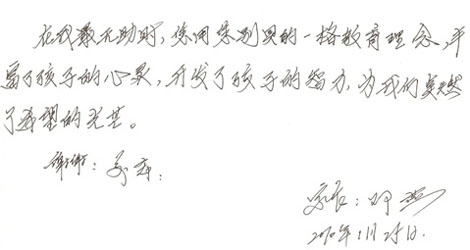 在我最无助时，您用您别具的一格教育理念，丰
富了孩子的心灵，开发了孩子的智力，为我们点燃
了希望的光芒。
谢谢：
家长：
2010年11月25日.